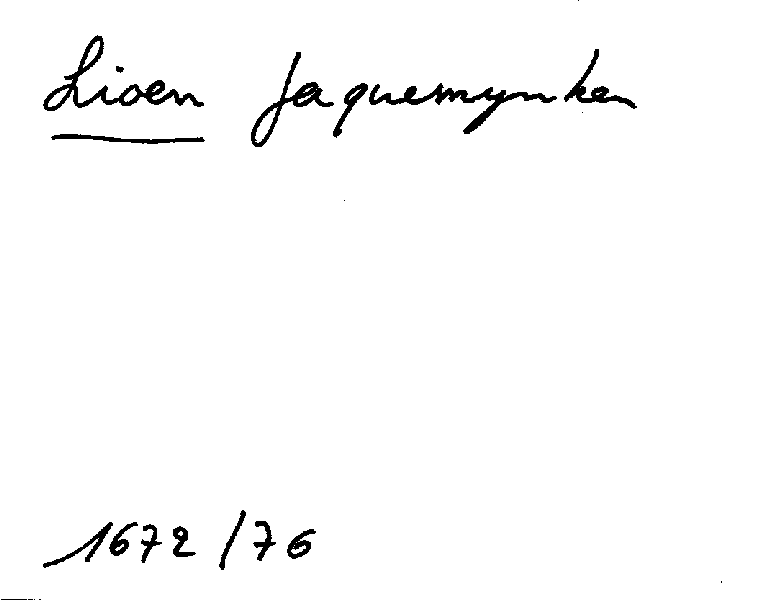 Lioen Jaquemynken
1672/76